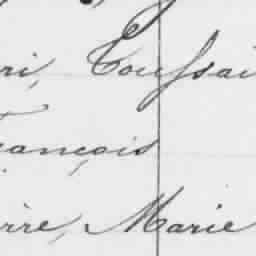 ri, Toussai
ançois
rre, Marie